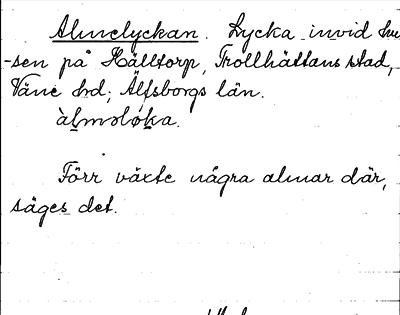 Almelyckan. Lycka invid hu
-sen på Hälltorp, Trollhättans stad,
Väne hd; Älfsborgs län.
àlməlòka.
Förr växte några almar där,
säges det.